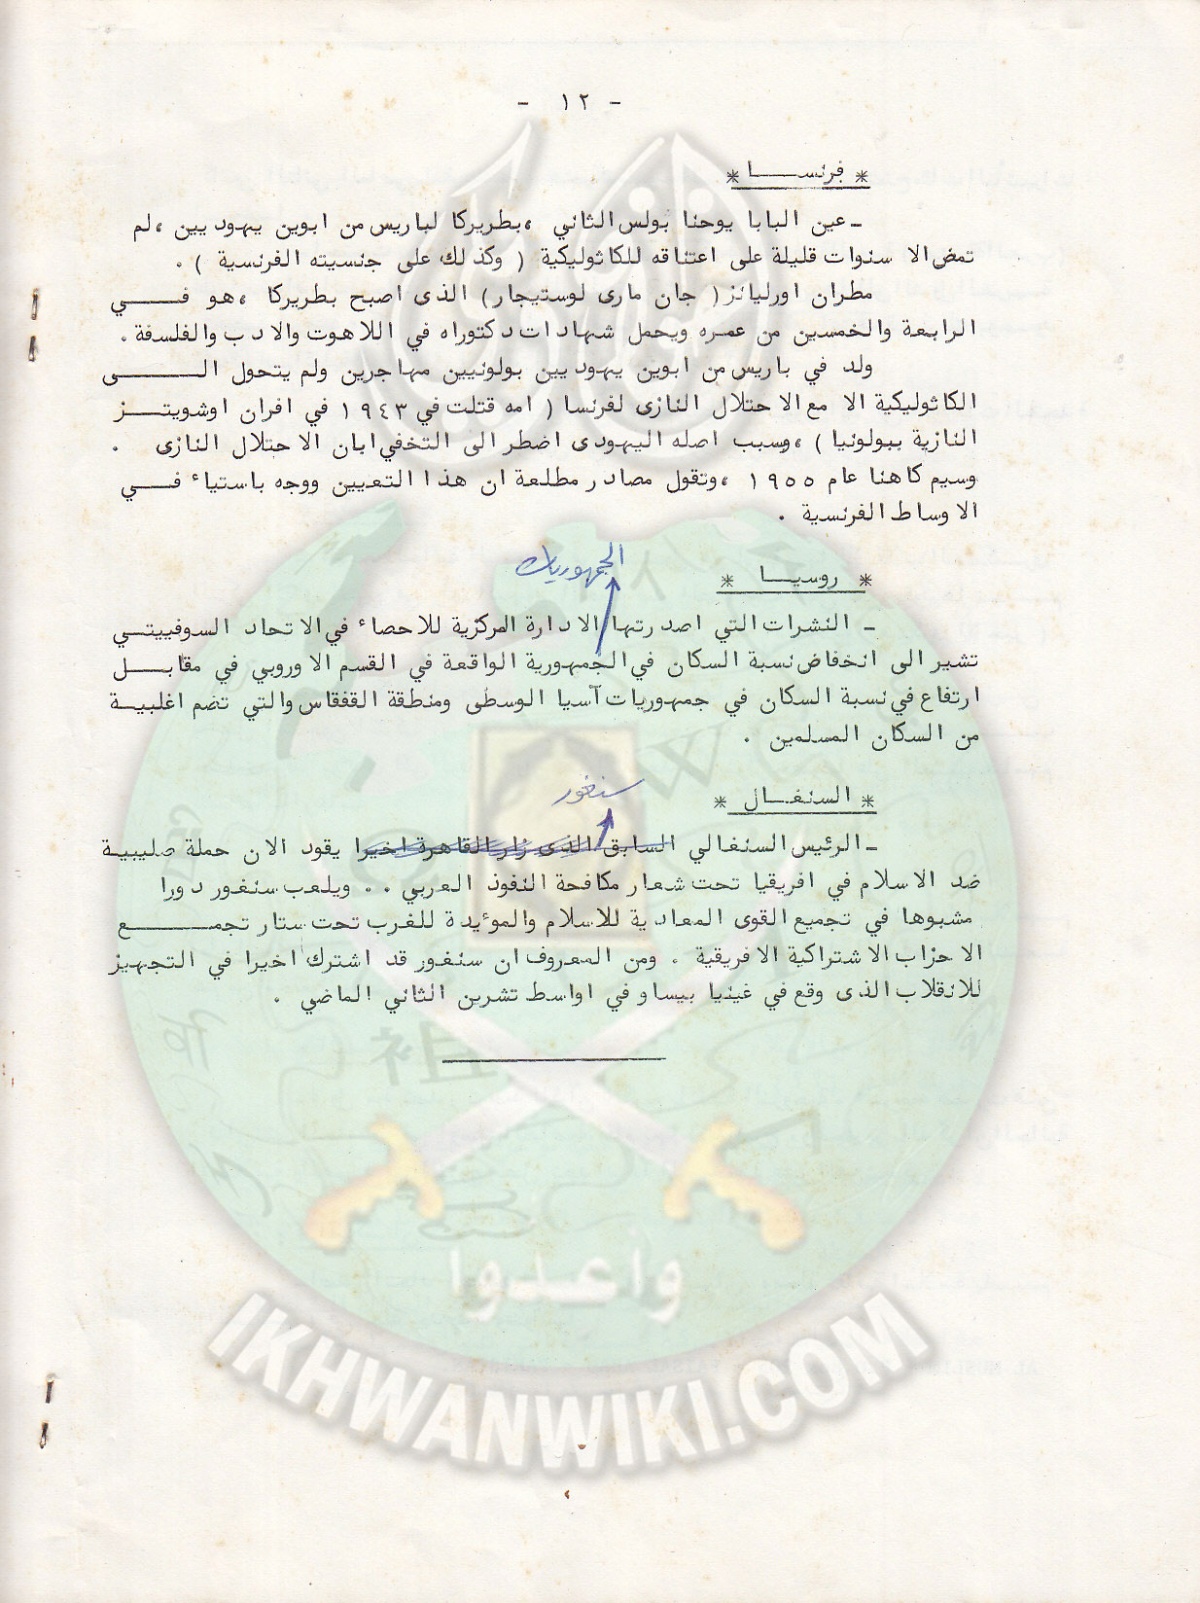 - ١٢ -
* فرنســـا *
ـ عين البابا يوحنا بولس الثاني ،بطريركا لباريس من ابوين يهوديين ،لم
تمض الا سنوات قليلة على اعتناقه للكاثوليكية ( وكذلك على جنسيته الفرنسية ) .
مطران اورليانز( جان مارى لوستيجار) الذى اصبح بطريركا ،هو فــي
الرابعة والخمسين من عمره ويحمل شهادات دكتوراه في اللاهوت والادب والفلسفة .
ولد في باريس من ابوين يهوديين بولونيين مهاجرين ولم يتحول الـــى
الكاثوليكية الا مع الاحتلال النازى لفرنسا ( امه قتلت في ١٩٤٣ في افران اوشويتــز
النازية ببولونيا ) ،وسبب اصله اليهودى اضطر الى التخفي ابان الاحتلال النازى .
وسيم كاهنا عام ١٩٥٥ ،وتقول مصادر مطلعة ان هذا التعيين ووجه باستياء فــي
الاوساط الفرنسية .
الجمهوريات
* روسيــا *
ـ النشرات التي اصدرتها الادارة المركزية للاحصاء في الاتحاد السوفييتــي
تشير الى انخفاض نسبة السكان في الجمهورية الواقعة في القسم الاوروبي في مقابــل
ارتفاع في نسبة السكان في جمهوريات آسيا الوسطى ومنطقة القفقاس والتي تضم اغلبيــة
من السكان المسلمين .
* السنغــال *
سنغور
ـ الرئيس السنغالي السابق الذى زار القاهرة اخيرا يقود الان حملة صليبية
ضد الاسلام في افريقيا تحت شعار مكافحة النفوذ العربي . . ويلعب سنغور دورا
مشبوها في تجميع القوى المعادية للاسلام والموءيدة للغرب تحت ستار تجمـــع
الاحزاب الاشتراكية الافريقية . ومن المعروف ان سنغور قد اشترك اخيرا في التجهيز
للانقلاب الذى وقع في غينيا بيساو في اواسط تشرين الثاني الماضي .
وأعدوا
IKHWANWIKI.COM